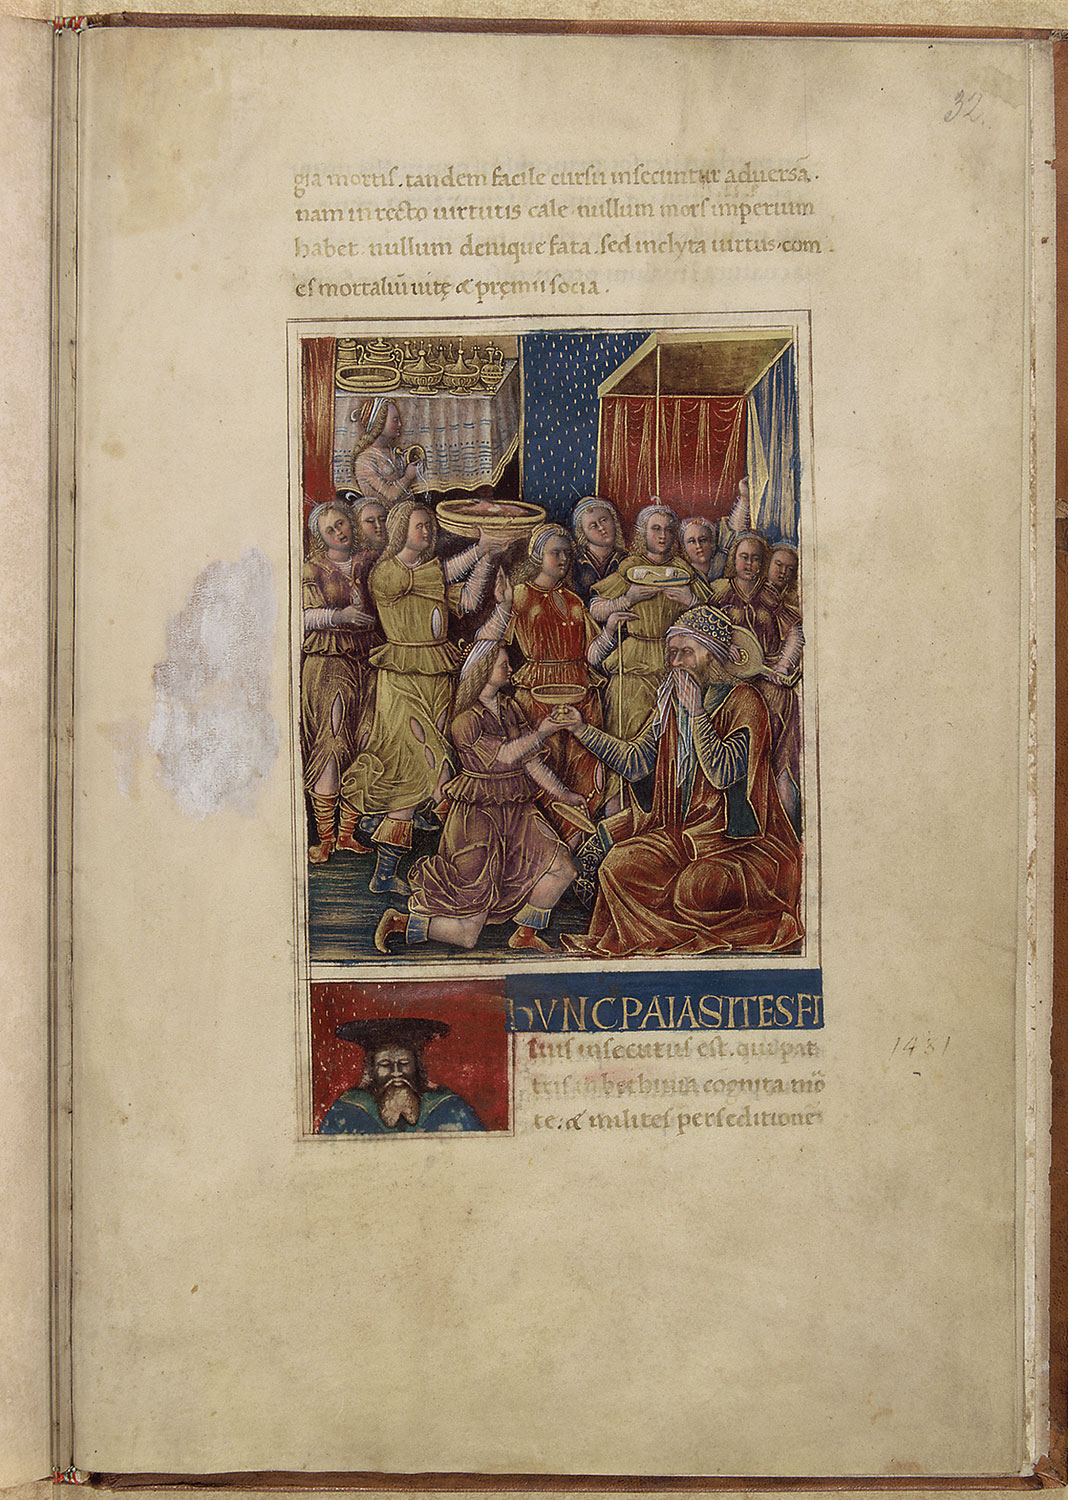 32.
gia mortis. tandem facile cursu insecuntur aduersā.
nam in recto uirtutis cale. nullum mors imperium
habet. nullum denique fata. sed inclyta uirtus. com
es mortaliū uitę & pręmii socia.
hVNC PAIASITES FI
lius insecutus est. qui pat
tris bethinia cognita mō
te: & milites per seditione
1481